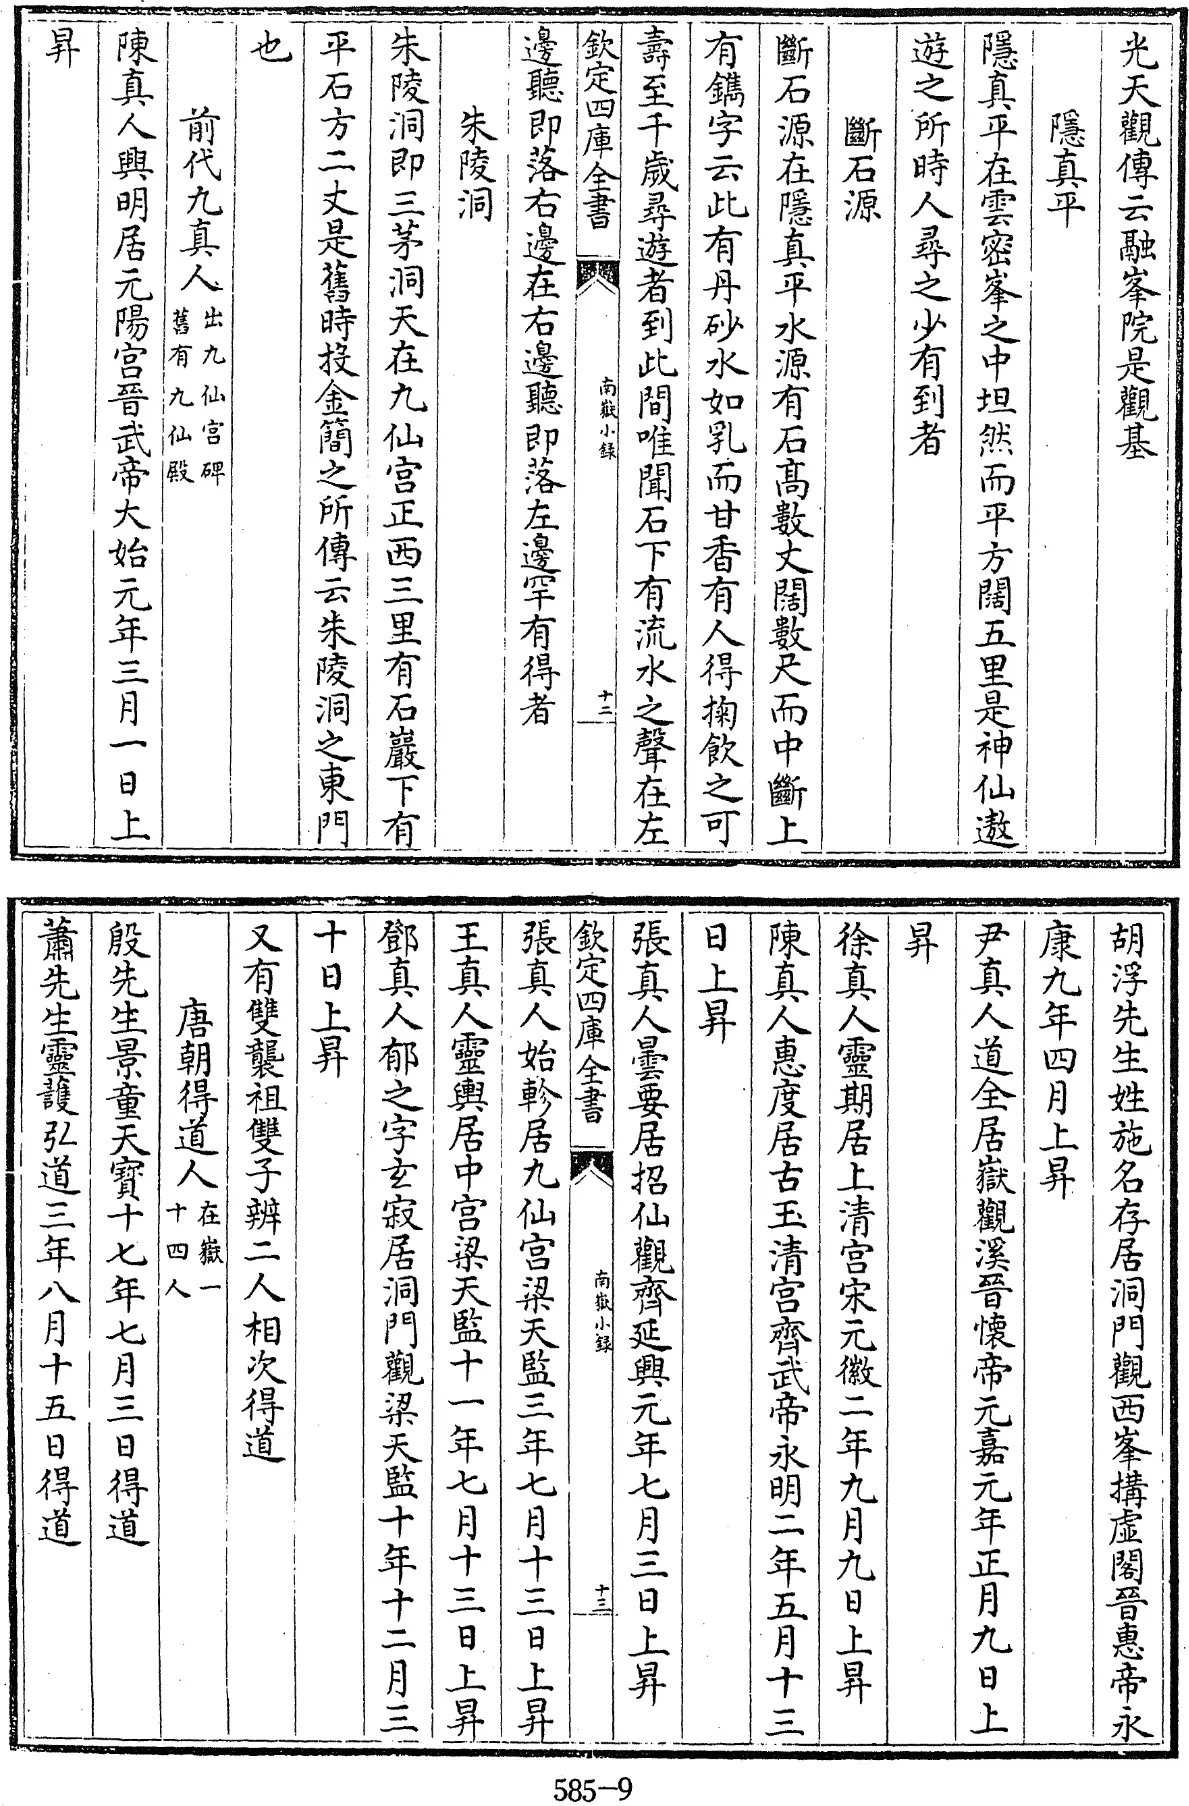 光天觀傳云融峯院是觀基
隱真平
隱真平在雲密峯之中坦然而平方闊五里是神仙遨
遊之所時人尋之少有到者
斷石源
斷石源在隱真平水源有石高數丈闊數尺而中斷上
有鐫字云此有丹砂水如乳而甘香有人得掬飲之可
壽至千歲尋遊者到此間唯聞石下有流水之聲在左
欽定四庫全書
南嶽小録
十二
邊聽即落右邊在右邊聽即落左邊罕有得者
朱陵洞
朱陵洞即三茅洞天在九仙宫正西三里有石巖下有
平石方二丈是舊時投金簡之所傳云朱陵洞之東門
也
前代九真人出九仙宫碑
舊有九仙殿
陳真人興明居元陽宫晉武帝大始元年三月一日上
昇
胡浮先生姓施名存居洞門觀西峯搆虚閣晉惠帝永
康九年四月上昇
尹真人道全居嶽觀溪晉懷帝元嘉元年正月九日上
昇
徐真人靈期居上清宫宋元徽二年九月九日上昇
陳真人惠度居古玉清宫齊武帝永明二年五月十三
日上昇
張真人曇要居招仙觀齊延興元年七月三日上昇
欽定四庫全書
南嶽小録
十三
張真人始軫居九仙宫梁天監三年七月十三日上昇
王真人靈輿居中宫梁天監十一年七月十三日上昇
鄧真人郁之字玄寂居洞門觀梁天監十年十二月三
十日上昇
又有雙襲祖雙子辨二人相次得道
唐朝得道人在嶽一
十四人
殷先生景童天寶十七年七月三日得道
蕭先生靈護弘道三年八月十五日得道
585-9